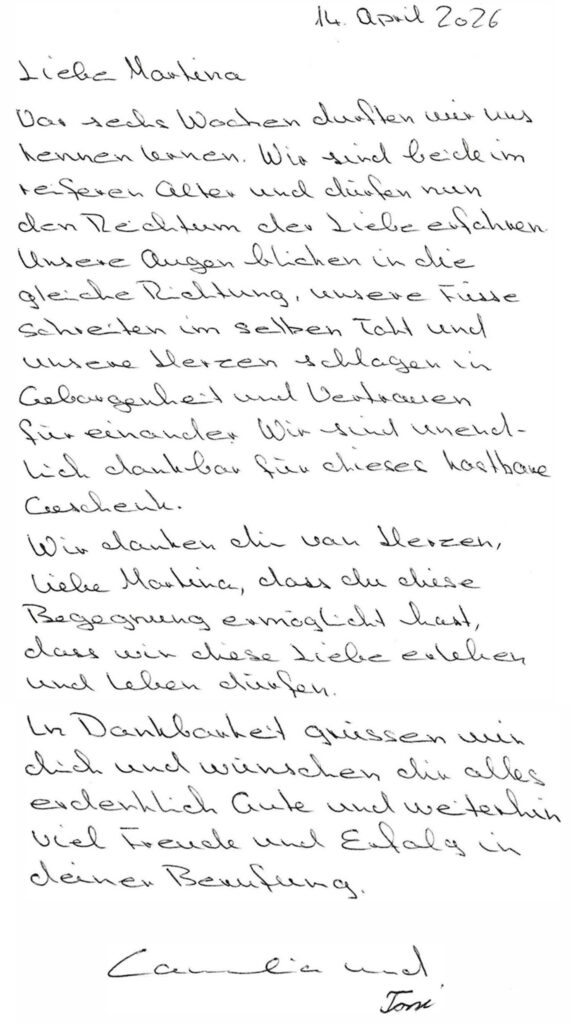 14. April 2026
Liebe Martina
Vor sechs Wochen durften wir uns
kennen lernen. Wir sind beide im
reiferen Alter und dürfen nun
den Reichtum der Liebe erfahren.
Unsere Augen blicken in die
gleiche Richtung, unsere Füsse
schreiten im selben Takt und
unsere Herzen schlagen in
Geborgenheit und Vertrauen
für einander. Wir sind unend-
lich dankbar für dieses kostbare
Geschenk.
Wir danken dir von Herzen,
liebe Martina, dass du diese
Begegnung ermöglicht hast,
dass wir diese Liebe erleben
und leben dürfen.
In Dankbarkeit grüssen wir
dich und wünschen dir alles
erdenklich Gute und weiterhin
viel Freude und Erfolg in
deiner Berufung.
und
Toni